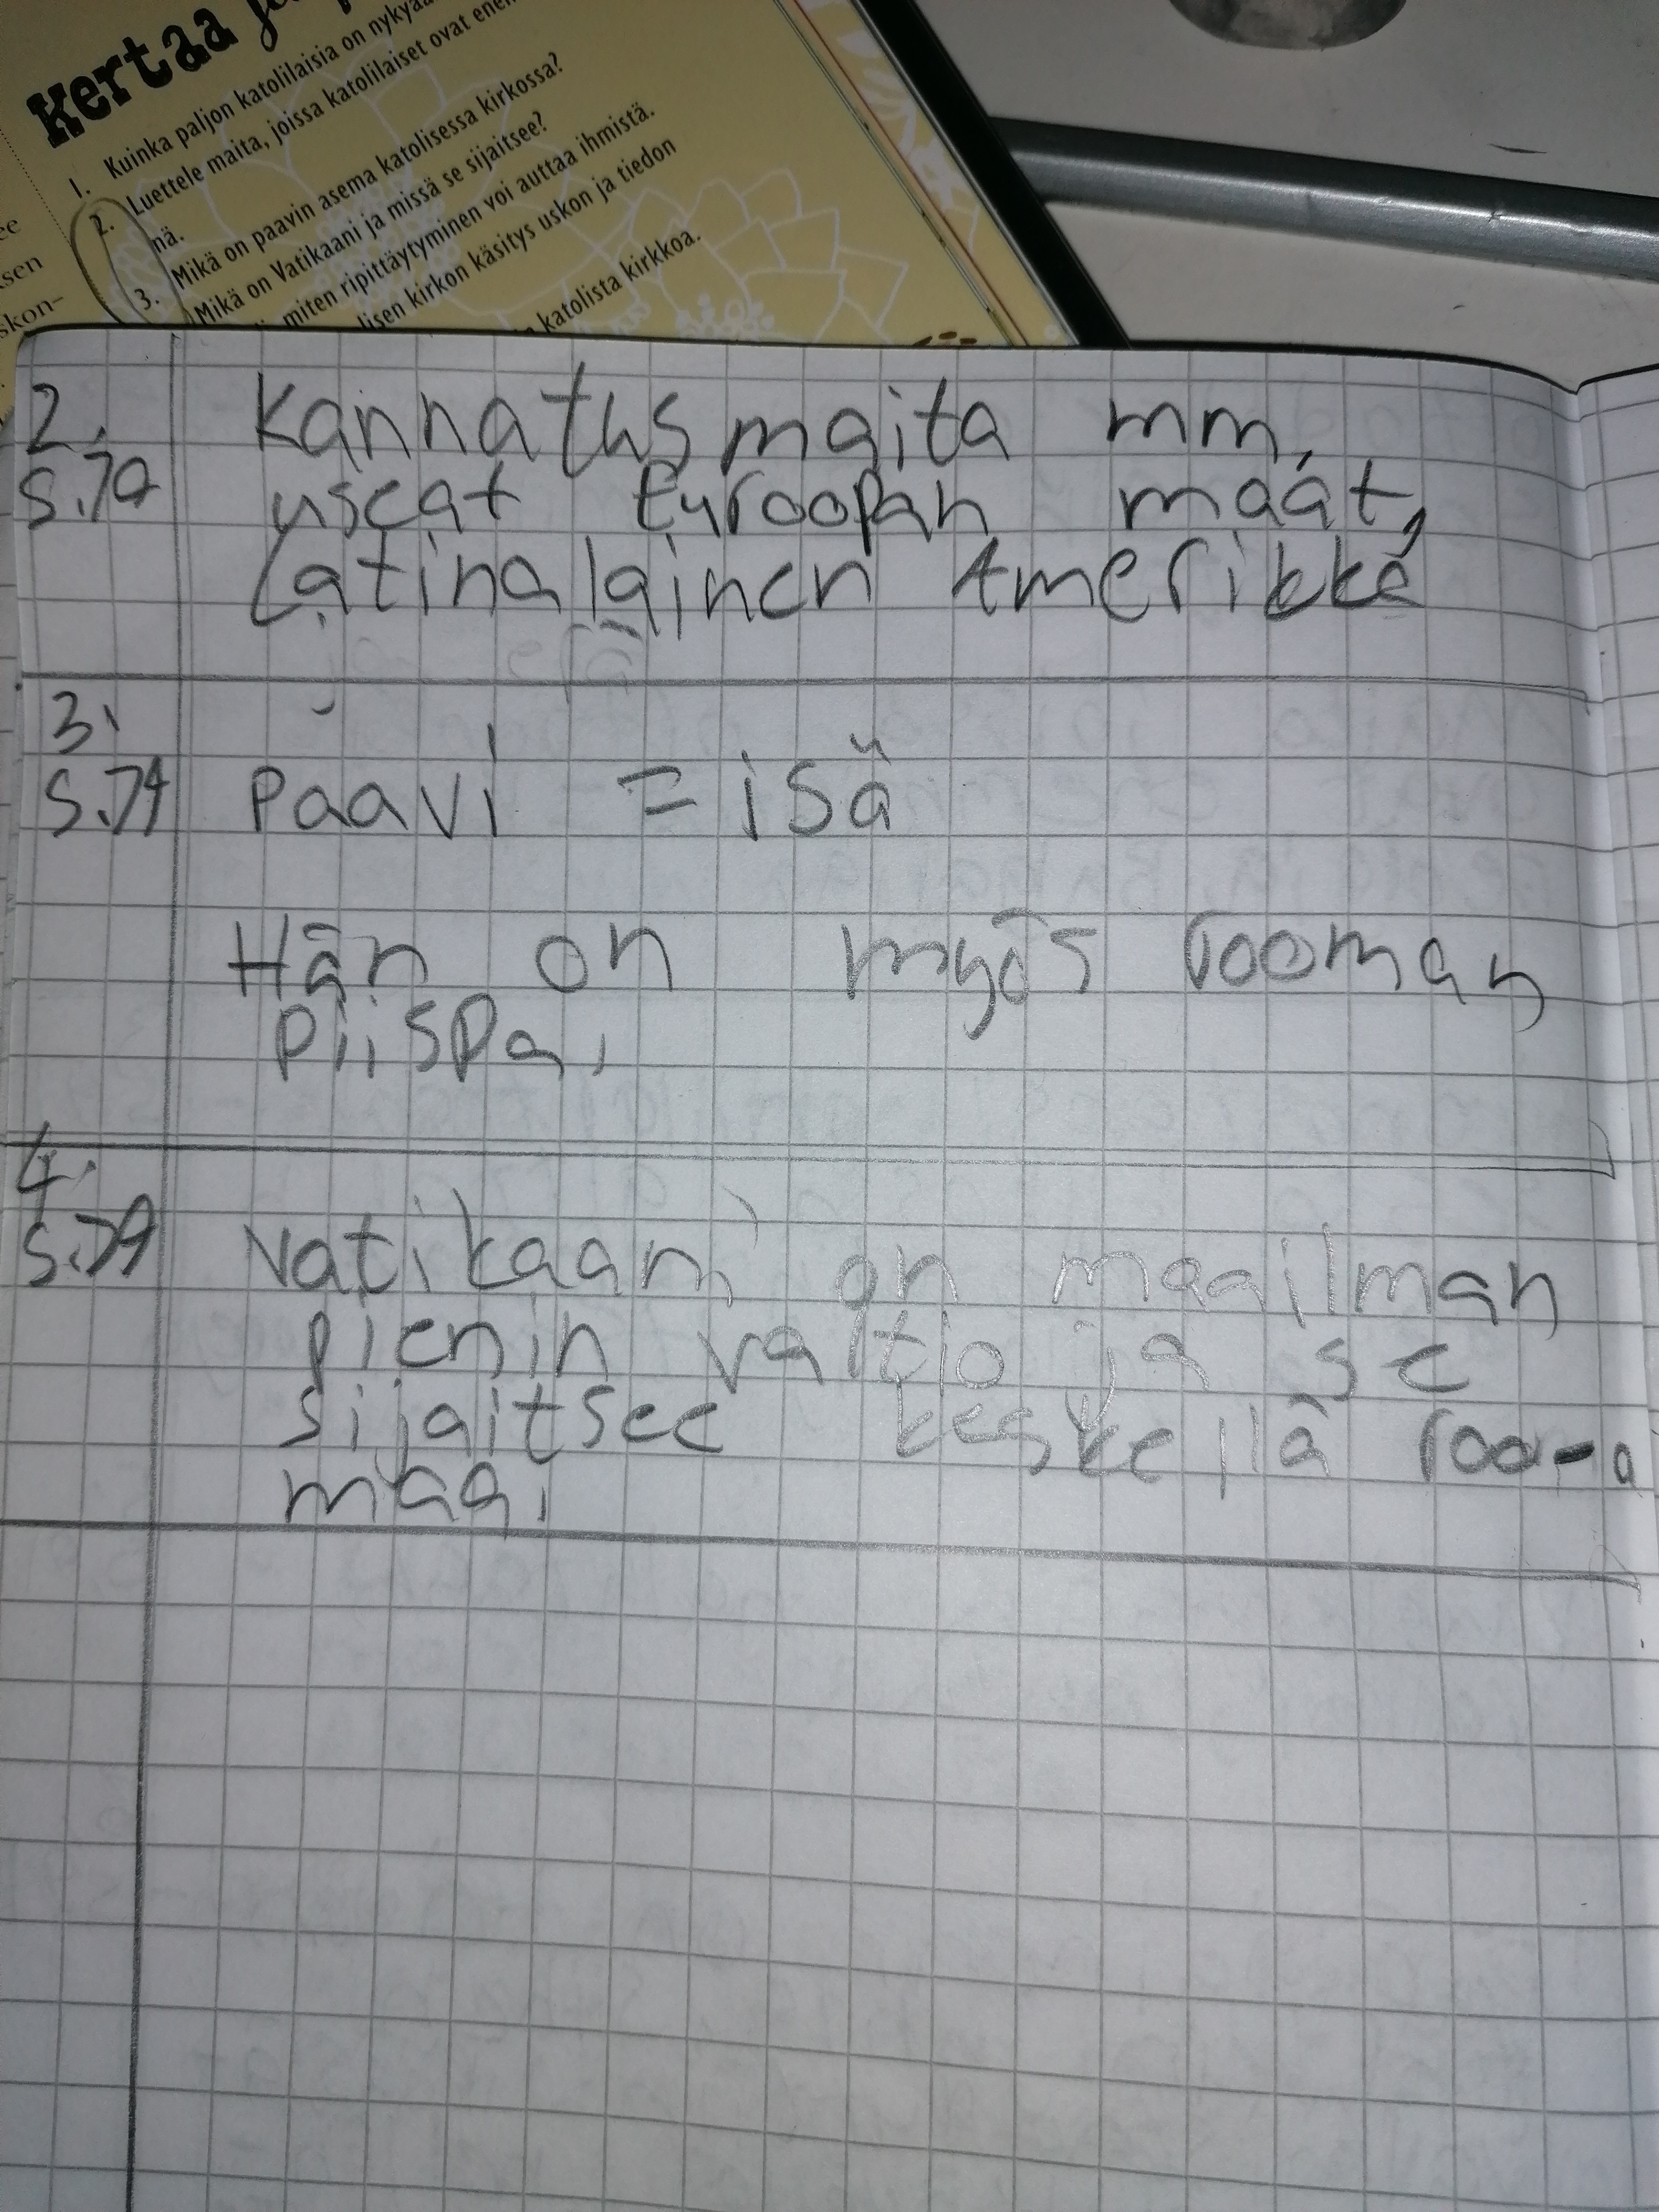 Kertaa
1. Kuinka paljon katolilaisia on nykyää
2. Luettele maita, joissa katolilaiset ovat ene
nä.
3. Mikä on paavin asema katolisessa kirkossa?
Mikä on Vatikaani ja missä se sijaitsee?
miten ripittäytyminen voi auttaa ihmistä.
lisen kirkon käsitys uskon ja tiedon
katolista kirkkoa.
ee
ksen
skon-
2. Kannatusmaita mm.
useat Euroopan maat,
Latinalainen Amerikka
3.
s.74 Paavi = isä
Hän on myös rooman
piispa.
4.
s.79 Vatikaani on maailman
pienin valtio ja se
sijaitsee keskellä roo-
maa.